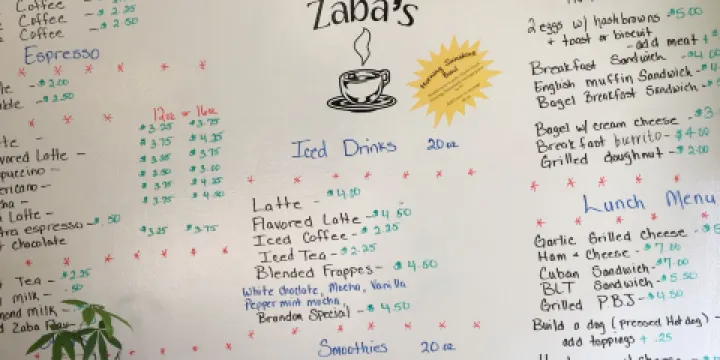 Coffee - $2.25
Coffee - $2.50
Espresso
- $2.00
- $2.50
12oz or 16oz
- $3.25 $3.75
Latte - $3.75 $4.25
- $3.25 $3.75
- $2.50 $3.00
- $3.75 $4.25
- $3.75 $4.50
Latte -
espresso - .50
chocolate $3.25 $3.75
Tea - $2.25
milk - .50
milk -
Zaba
Zaba's
Morning Sunshine
Bowl
Iced Drinks 20oz
Latte - $4.00
Flavored Latte - $4.50
Iced Coffee - $2.25
Iced Tea - $2.25
Blended Frappes - $4.50
White choclate, Mocha, Vanilla
Peppermint mocha
Brandon Special - $4.50
Smoothies 20oz
2 eggs w/ hashbrowns $5.00
+ toast or biscuit
- add meat +
Breakfast Sandwich - $4.00
English muffin Sandwich - $4
Bagel Breakfast Sandwich - $
Bagel w/ cream cheese - $3
Breakfast burrito - $4.00
Grilled doughnut - $2.00
Lunch Menu
Garlic Grilled Cheese - $5
Ham + Cheese - $7.00
Cuban Sandwich - $7.00
BLT Sandwich - $5.50
Grilled PBJ - $4.50
Build a dog (pressed Hot dog) -
add toppings + .25